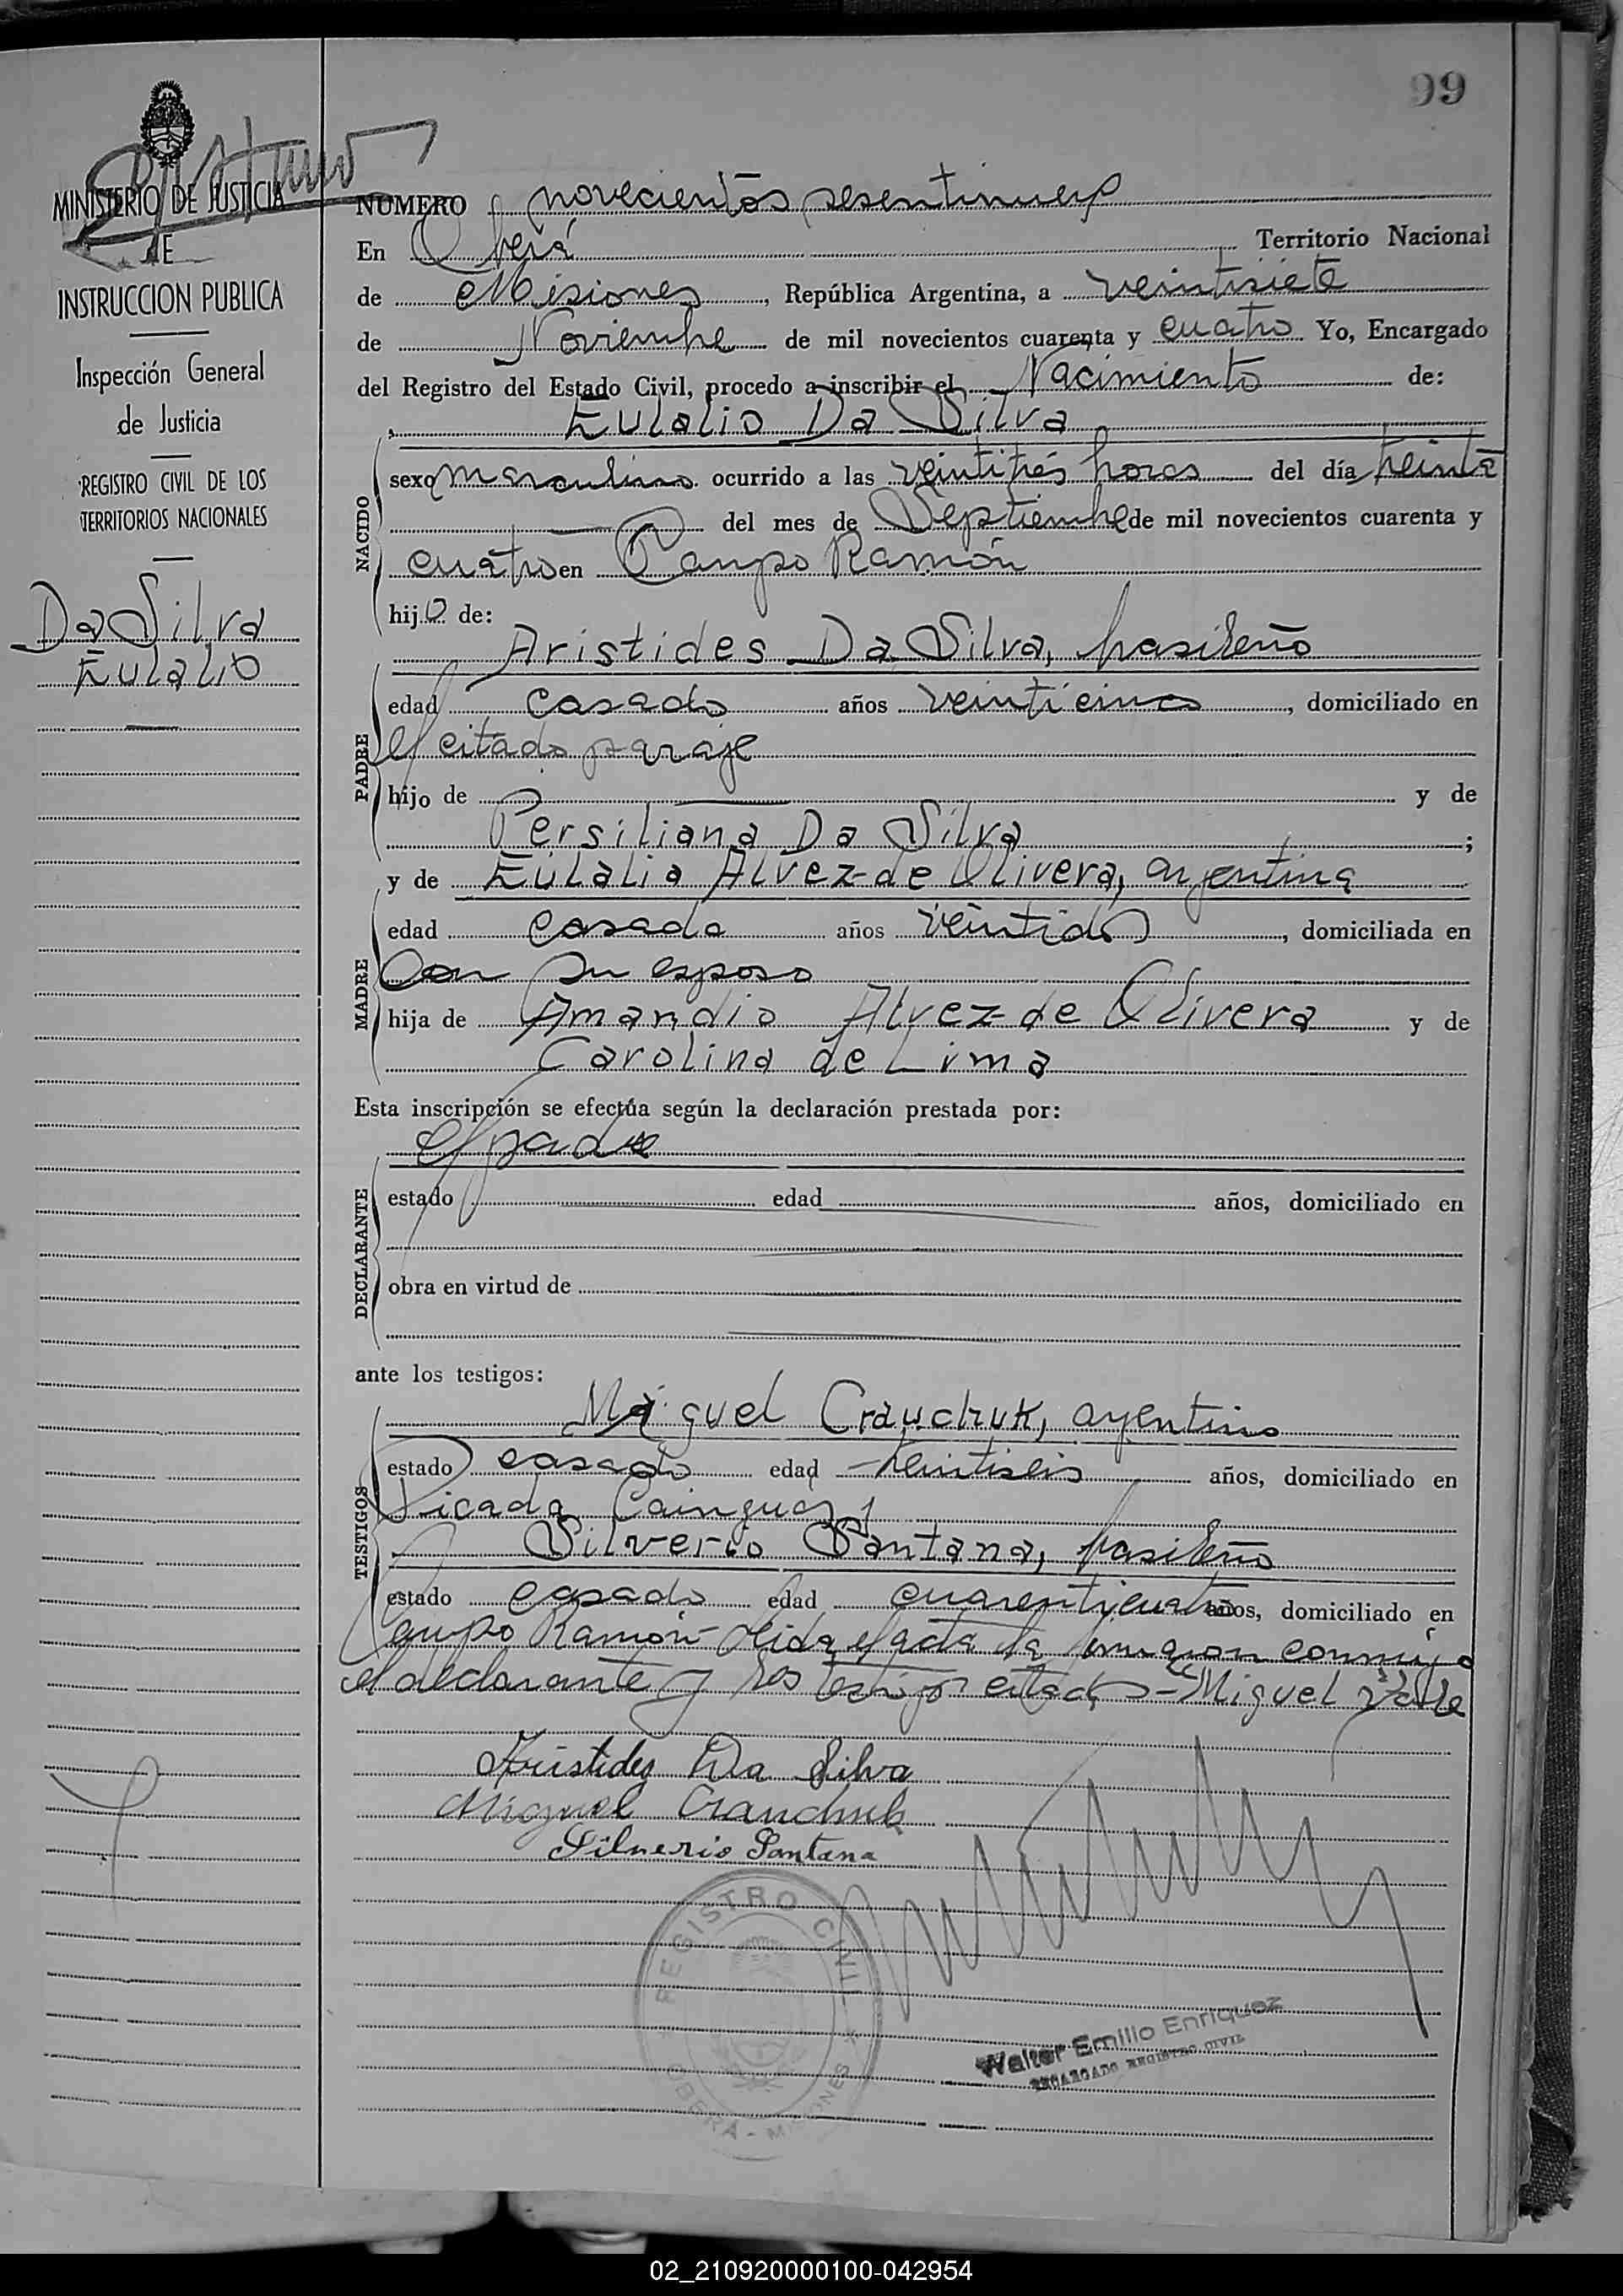 99
MINISTERIO DE JUSTICIA
E
INSTRUCCION PUBLICA
Inspección General
de Justicia
REGISTRO CIVIL DE LOS
TERRITORIOS NACIONALES
Da Silva
Eulalio
NUMERO novecientos sesentinueve
En Oberá Territorio Nacional
de Misiones, República Argentina, a veintisiete
de Noviembre de mil novecientos cuarenta y cuatro Yo, Encargado
del Registro del Estado Civil, procedo a inscribir el Nacimiento de:
Eulalio Da Silva
NACIDO
sexo masculino ocurrido a las veintitrés horas del día treinta
del mes de Septiembre de mil novecientos cuarenta y
cuatro en Campo Ramón
hijo de:
Aristides Da Silva, brasileño
PADRE
edad casado años veinticinco, domiciliado en
el citado paraje
hijo de y de
Persiliana Da Silva;
y de Eulalia Alvez de Olivera, argentina
MADRE
edad casada años veintidós, domiciliada en
Con su esposo
hija de Amandio Alvez de Olivera y de
Carolina de Lima
Esta inscripción se efectúa según la declaración prestada por:
el padre
DECLARANTE
estado edad años, domiciliado en
obra en virtud de
ante los testigos:
Miguel Crauchuk, argentino
TESTIGOS
estado casado edad treintiseis años, domiciliado en
Picada Cainguas y
Silverio Santana, brasileño
estado casado edad cuarenticuatro años, domiciliado en
Campo Ramón Leida el acta la firmaron conmigo
el declarante y los testigos citados - Miguel Vale
Aristides Da Silva
Miguel Crauchuk
Silverio Santana
REGISTRO CIVIL
OBERA - MISIONES
Walter Emilio Enriquez
ENCARGADO REGISTRO CIVIL
02_210920000100-042954